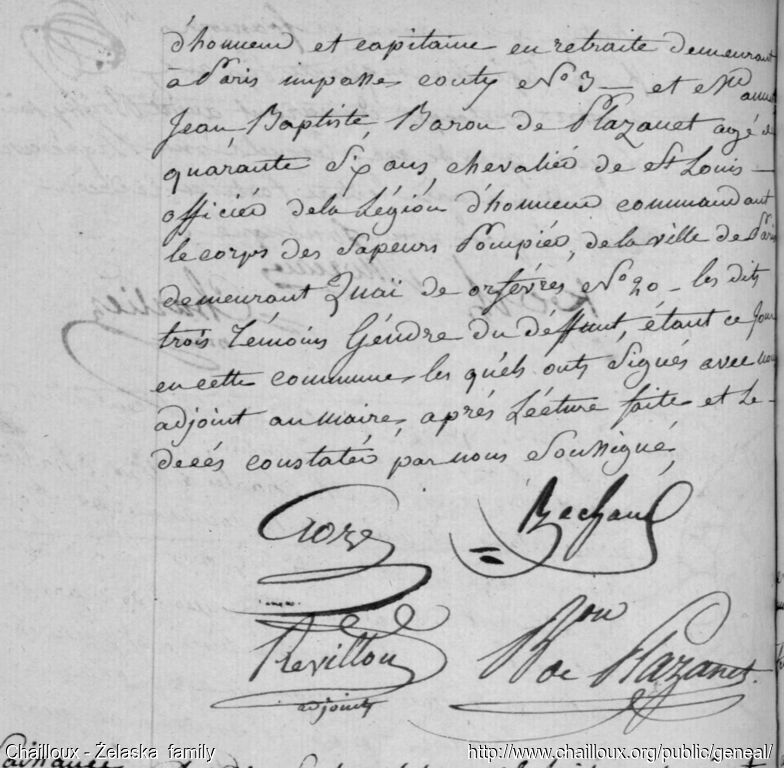 d'honneur et capitaine en retraite demeurant
à Paris impasse conty No 3 — et Mr
Jean Baptiste, Baron de Plazanet agé de
quárante Six ans, chevaliér de St Louis —
officiér dela Légión d'honneur commandant
le corps des Sapeurs Pompiér, de la ville de Paris
demeurant Quaï de orfévres No 20 — les dits
trois Témoins Géndre du déffunt, étant ce Jour
en cette commune, les quéls onts Signés avec nous
adjoint au maire, aprés Lécture faite et Le —
decés constatér par nous Soussigné,
Croze
Bechaud
Revillon
adjoint
Bon de Plazanet
Chailloux - Żelaska family
http://www.chailloux.org/public/geneal/